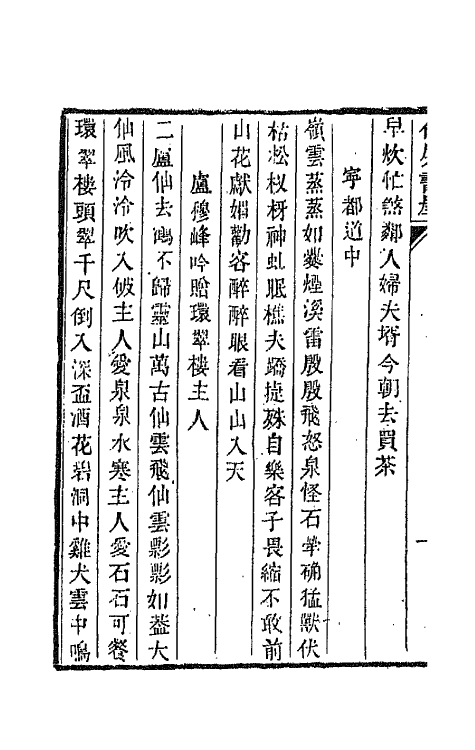 早炊忙煞鄰人婦夫壻今朝去買茶
寧都道中
嶺雲蒸蒸如爨煙溪雷殷殷飛怒泉怪石犖确猛獸伏
枯松杈枒神虬眠樵夫蹻捷殊自樂客子畏縮不敢前
山花獻媚勸客醉醉眼看山山入天
盧穆峰吟贈環翠樓主人
二盧仙去鶴不歸靈山萬古仙雲飛仙雲影影如蓋大
仙風泠泠吹入破主人愛泉泉水寒主人愛石石可餐
環翠樓頭翠千尺倒入深盃酒花碧洞中雞犬雲中鳴